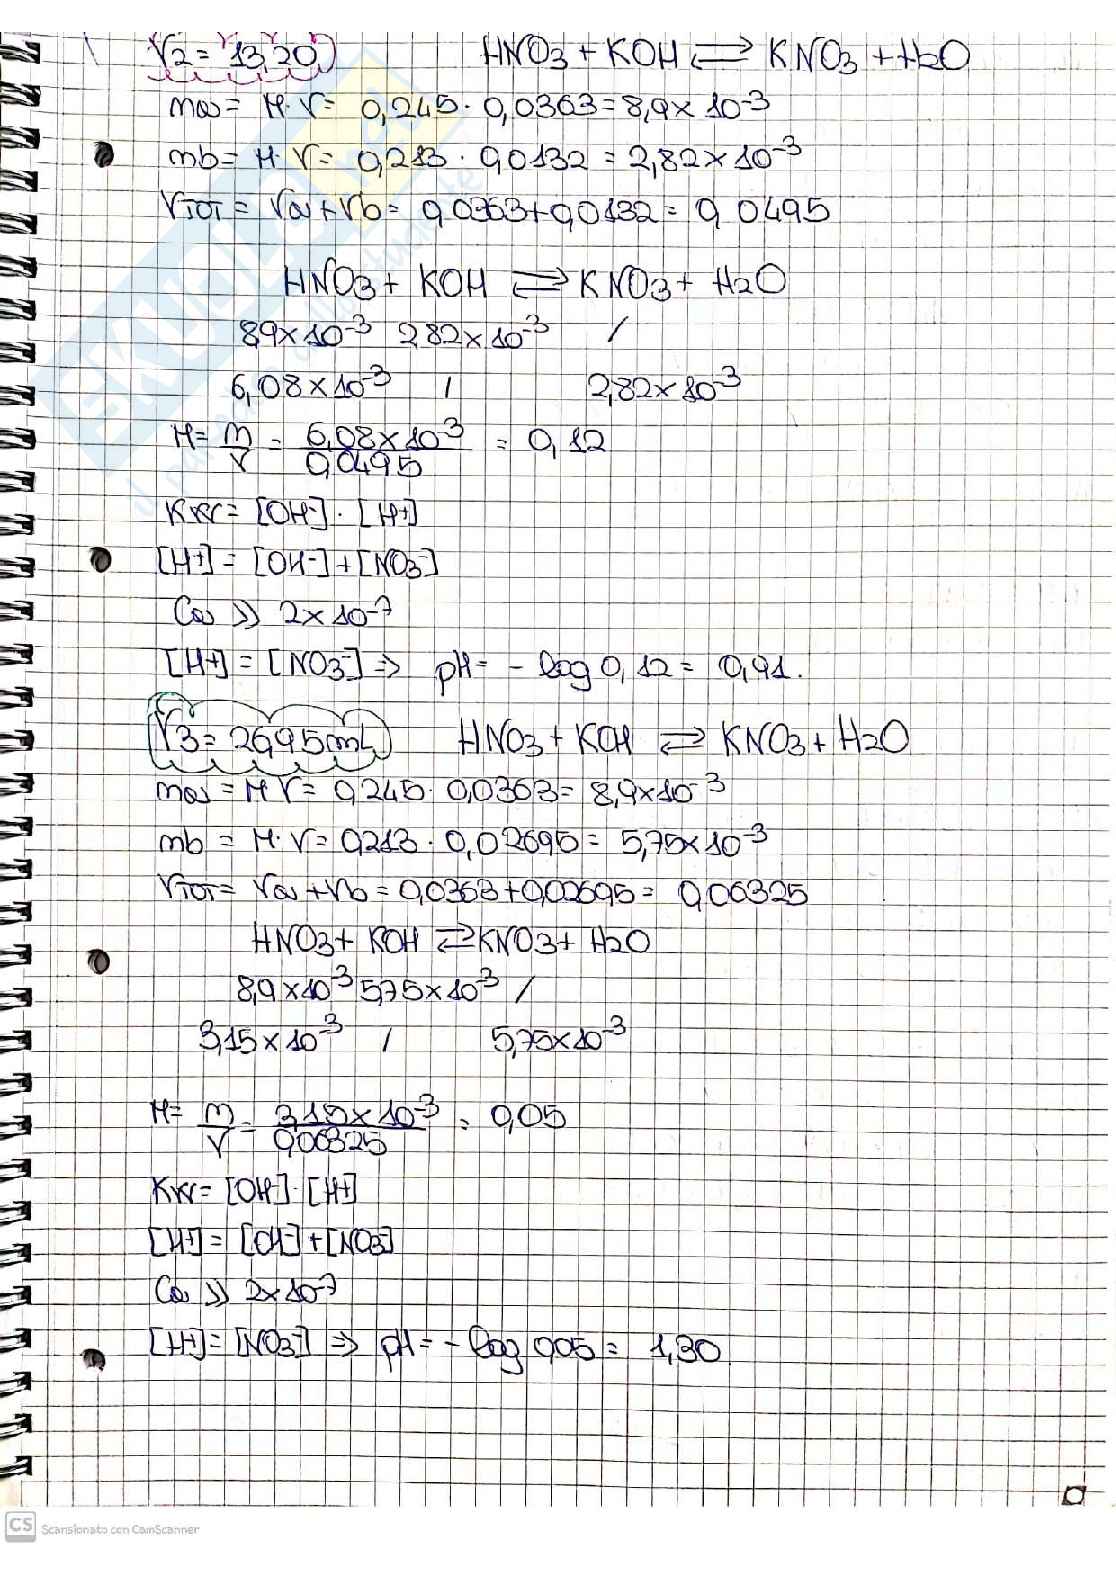 V2 = 13,20 HNO3 + KOH ⇌ KNO3 + H2O
na = M·V = 0,245 · 0,0363 = 8,9 x 10-3
nb = M·V = 0,213 · 0,0132 = 2,82 x 10-3
VTOT = Va + Vb = 0,0363 + 0,0132 = 0,0495
HNO3 + KOH ⇌ KNO3 + H2O
8,9 x 10-3 2,82 x 10-3 /
6,08 x 10-3 / 2,82 x 10-3
M = n/V = 6,08 x 10-3/0,0495 = 0,12
Kw = [OH-] · [H+]
[H+] = [OH-] + [NO3-]
Ca >> 2 x 10-7
[H+] = [NO3-] => pH = - log 0,12 = 0,91.
V3 = 26,95 mL HNO3 + KOH ⇌ KNO3 + H2O
na = M V = 0,245 · 0,0363 = 8,9 x 10-3
nb = M·V = 0,213 · 0,02695 = 5,75 x 10-3
VTOT = Va + Vb = 0,0363 + 0,02695 = 0,06325
HNO3 + KOH ⇌ KNO3 + H2O
8,9 x 10-3 5,75 x 10-3 /
3,15 x 10-3 / 5,75 x 10-3
M = n/V = 3,15 x 10-3/0,06325 = 0,05
Kw = [OH-] · [H+]
[H+] = [OH-] + [NO3-]
Ca >> 2 x 10-7
[H+] = [NO3-] => pH = - log 0,05 = 1,30
CS Scansionato con CamScanner